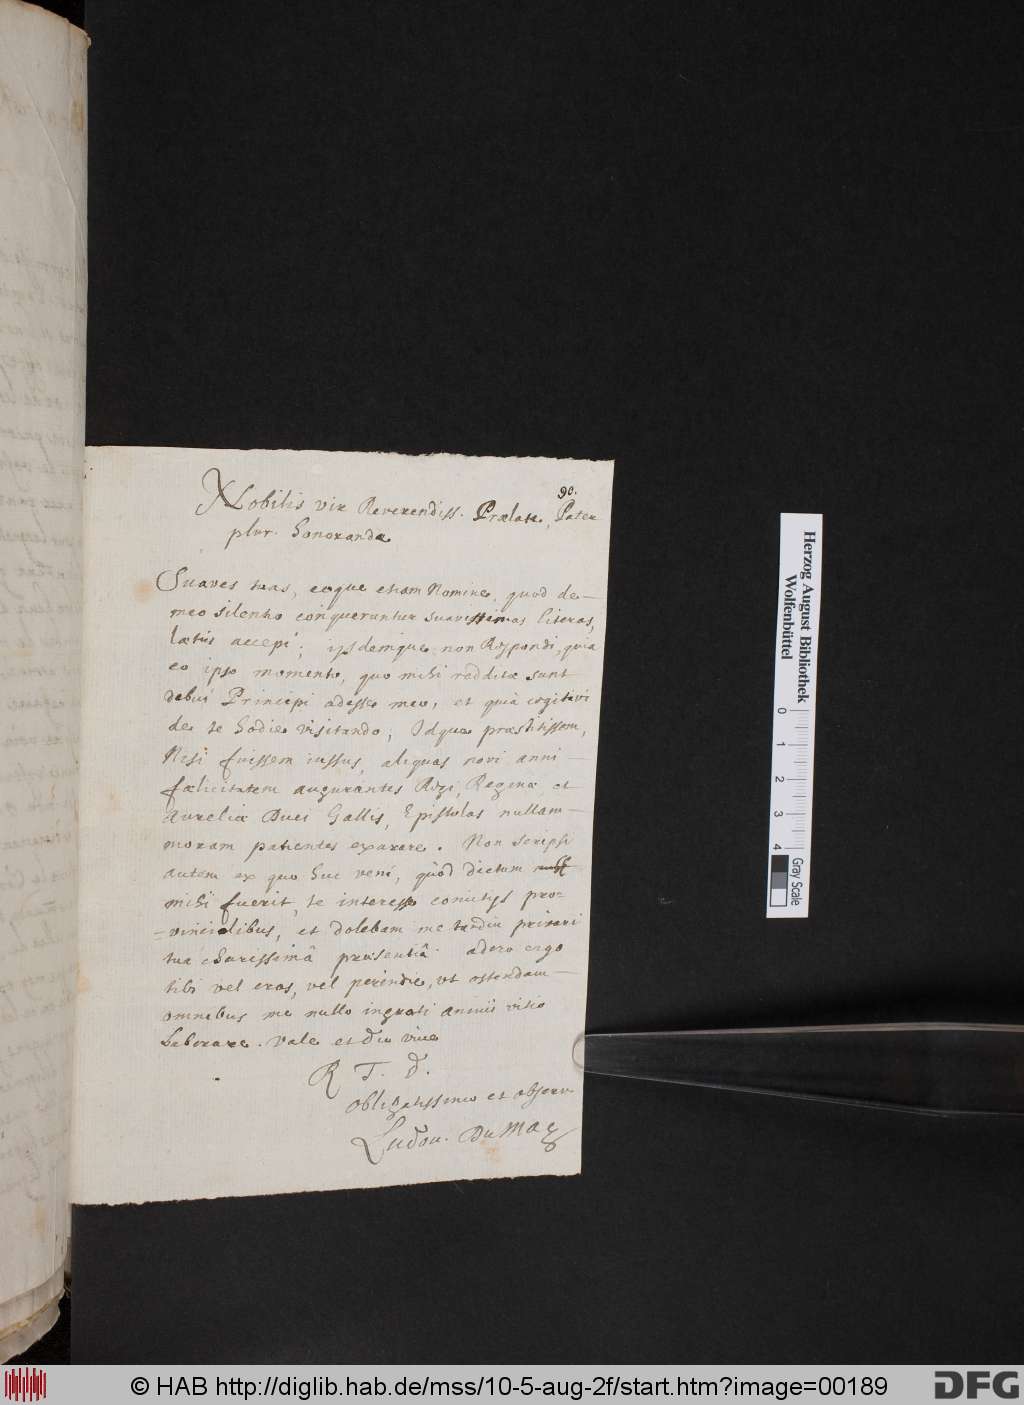 90.
Nobilis vir Reverendiss. Prælate, Pater
plur. honorande
Suaves tuas, eoque etiam Nomine, quod de
meo silentio conqueruntur suavissimas literas,
lætus accepi; ijsdemque non Respondi, quia
eo ipso momento, quo mihi redditæ sunt
debui Principi adesse meo, et quia cogitavi
de te hodie visitando; Idque præstitissem,
Nisi fuissem iussus, aliquas novi anni
fælicitatem augurantes Regi, Reginæ, et
Aureliæ Duci Gallis, Epistolas nullam
moram patientes exarare. Non scripsi
autem ex quo huc veni, quòd dictum
mihi fuerit, te interesse comitijs pro=
=vincialibus, et dolebam me tandiu privari
tuâ charissimâ præsentiâ adero ergo
tibi vel cras, vel perindie, ut ostendam
omnibus me nullo ingrati animi vitio
laborare. Vale et diu vive
R T. D.
obligatissimus et observ.
Ludov. Du May
Herzog August Bibliothek
Wolfenbüttel
0 1 2 3 4
Gray Scale
© HAB http://diglib.hab.de/mss/10-5-aug-2f/start.htm?image=00189
DFG